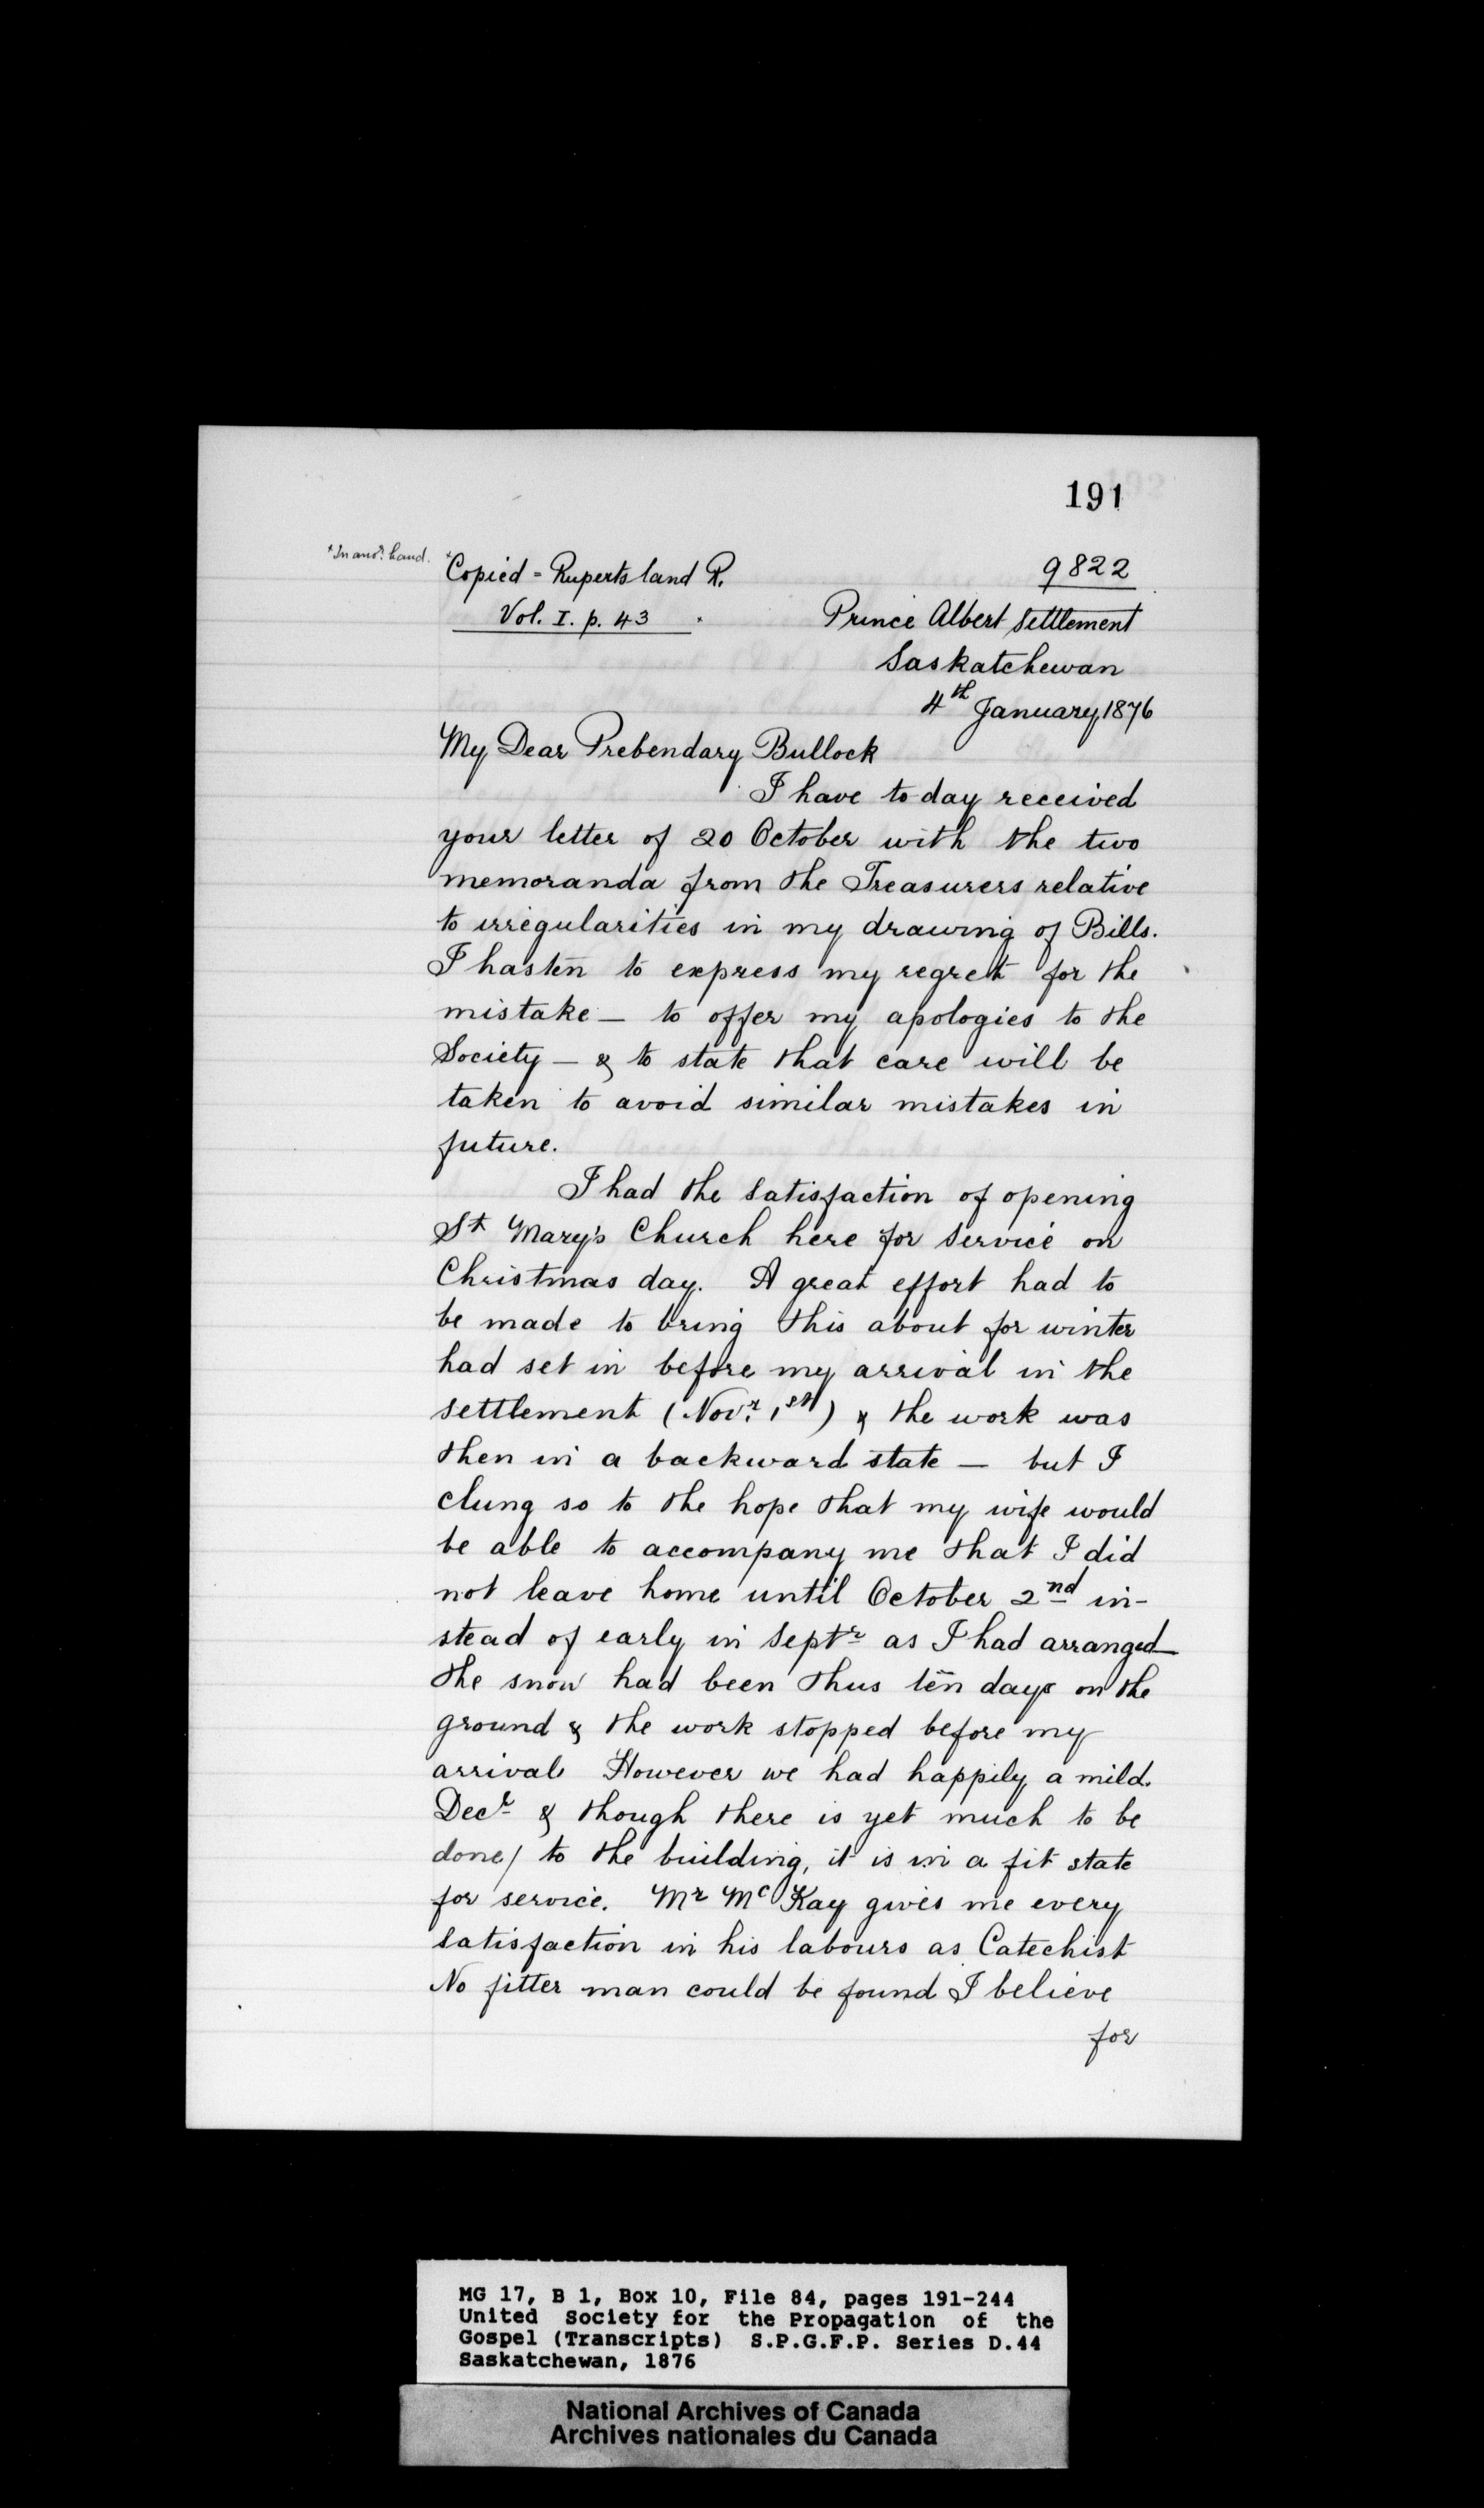 191
*In anoʳ. hand.
*Copied = Ruperts land R.
Vol. I. p. 43 *
9822
Prince Albert Settlement
Saskatchewan
4th January 1876
My Dear Prebendary Bullock
I have to day received
your letter of 20 October with the two
memoranda from the Treasurers relative
to irregularities in my drawing of Bills.
I hasten to express my regret for the
mistake — to offer my apologies to the
Society — & to state that care will be
taken to avoid similar mistakes in
future.
I had the satisfaction of opening
St Mary's Church here for service on
Christmas day. A great effort had to
be made to bring this about for winter
had set in before my arrival in the
settlement (Novʳ. 1st) & the work was
then in a backward state — but I
clung so to the hope that my wife would
be able to accompany me that I did
not leave home until October 2nd in-
stead of early in Septʳ as I had arranged—
the snow had been thus ten days on the
ground & the work stopped before my
arrival. However we had happily a mild
Decʳ & though there is yet much to be
done/ to the building, it is in a fit state
for service. Mʳ Mᶜ Kay gives me every
satisfaction in his labours as Catechist
No fitter man could be found I believe
for
MG 17, B 1, Box 10, File 84, pages 191-244
United Society for the Propagation of the
Gospel (Transcripts) S.P.G.F.P. Series D.44
Saskatchewan, 1876
National Archives of Canada
Archives nationales du Canada